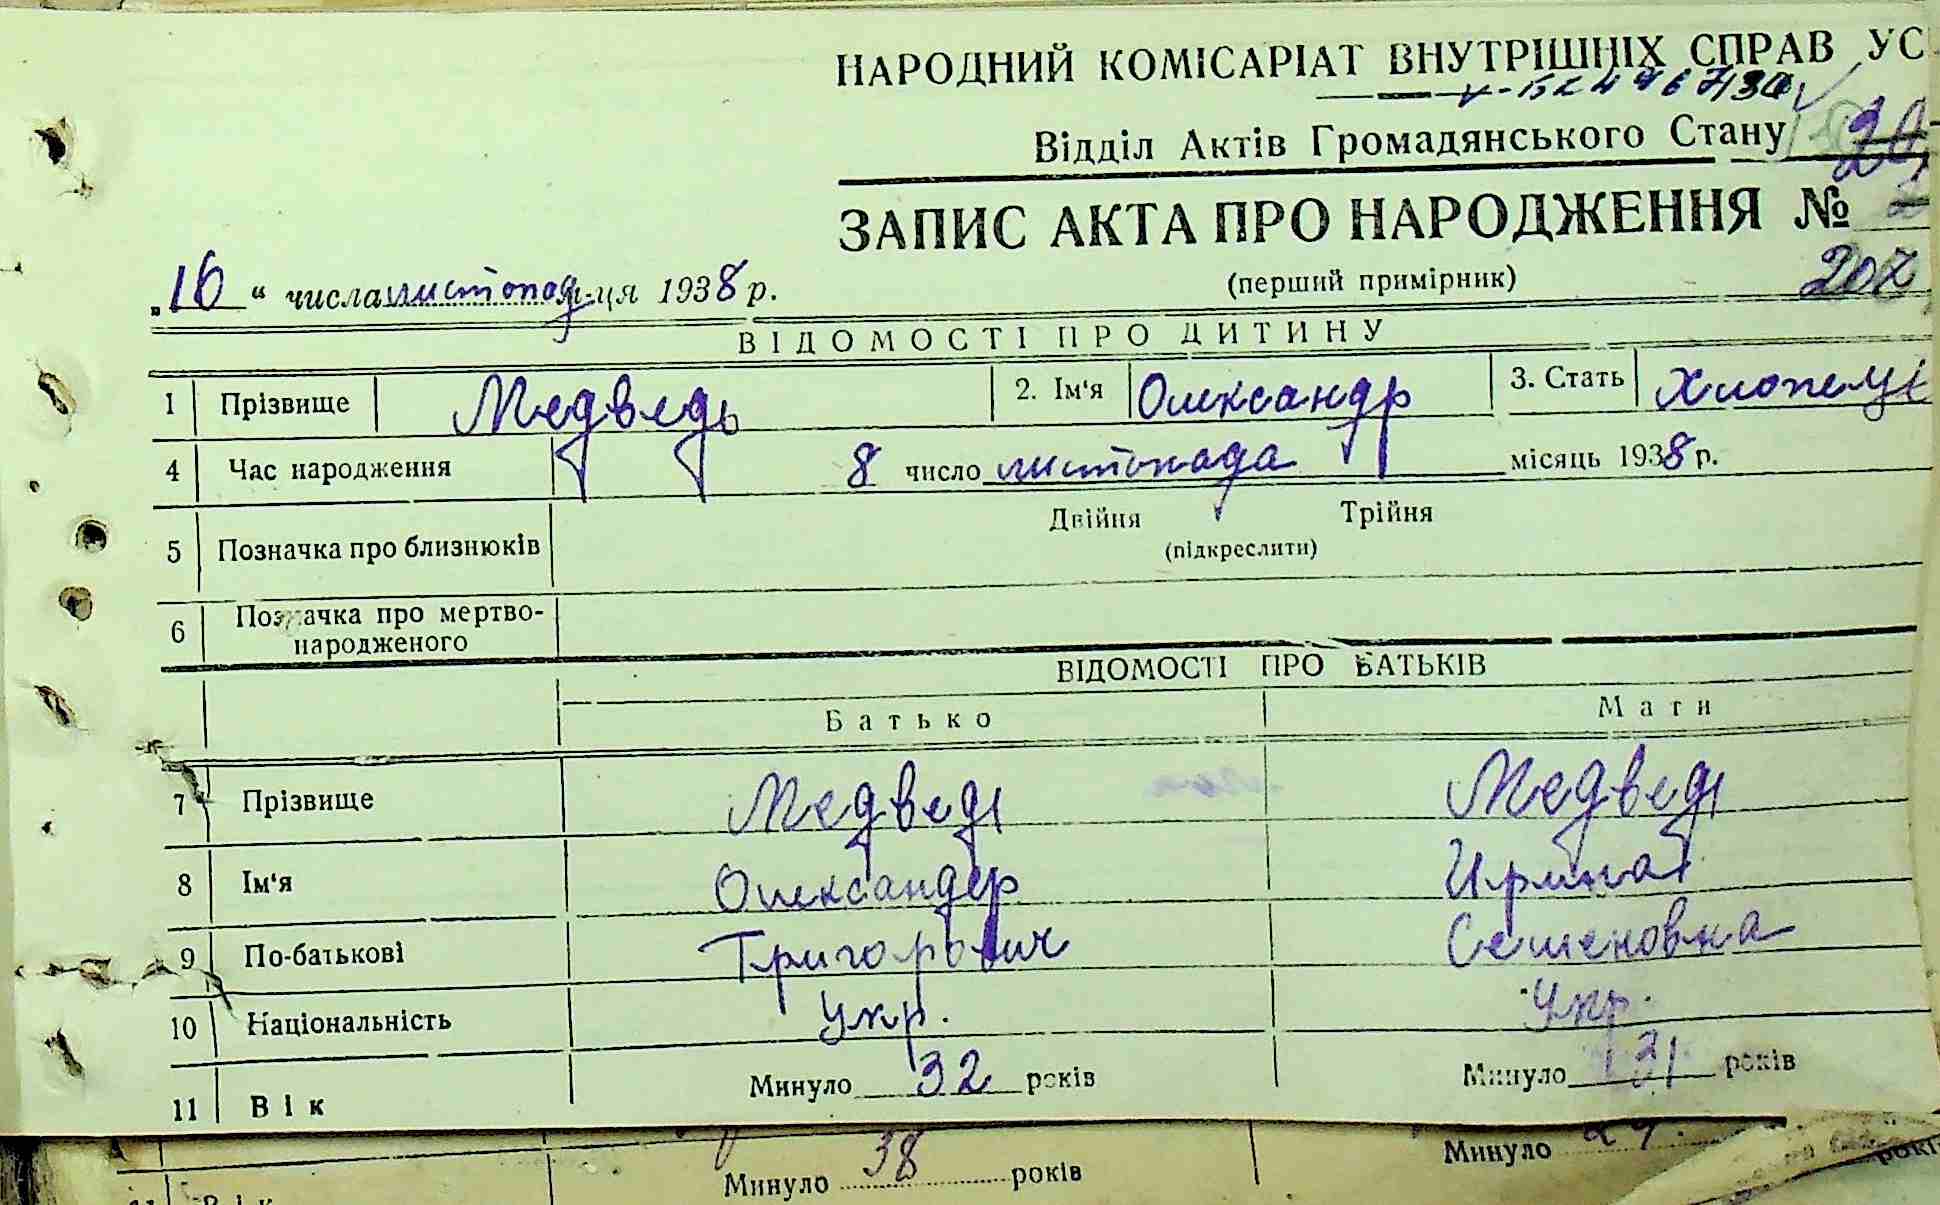 НАРОДНИЙ КОМІСАРІАТ ВНУТРІШНІХ СПРАВ УС
Відділ Актів Громадянського Стану
ЗАПИС АКТА ПРО НАРОДЖЕННЯ №
„16“ числа листопад м-ця 1938 р.
(перший примірник)
207
ВІДОМОСТІ ПРО ДИТИНУ
1 Прізвище Медведь 2. Ім'я Олександр 3. Стать Хлопець
4 Час народження 8 число листопада місяць 1938 р.
5 Позначка про близнюків Двійня Трійня
(підкреслити)
6 Позначка про мертво-
народженого
ВІДОМОСТІ ПРО БАТЬКІВ
Батько Мати
7 Прізвище Медведь Медведь
8 Ім'я Олександер Ирина
9 По-батькові Григорович Семеновна
10 Національність Укр. Укр.
11 Вік Минуло 32 років Минуло 31 років
Минуло 38 років Минуло 29 років
11 Вік